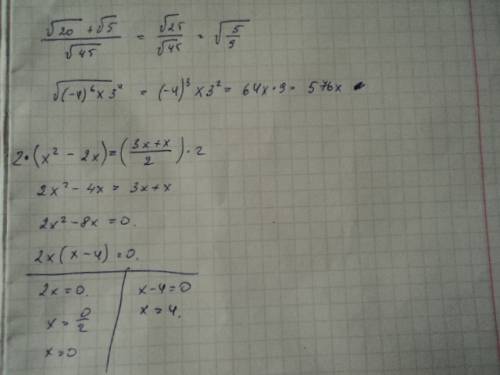 (√20 + √5)/√45 = √25/√45 = √(5/9)
√((-4)⁶ x 3⁴) = (-4)³ x 3² = 64x · 9 = 576x
2·(x² - 2x) = ((3x+x)/2)·2
2x² - 4x = 3x+x
2x² - 8x = 0.
2x(x-4) = 0.
2x = 0. x-4=0
x = 0/2 x = 4.
x=0